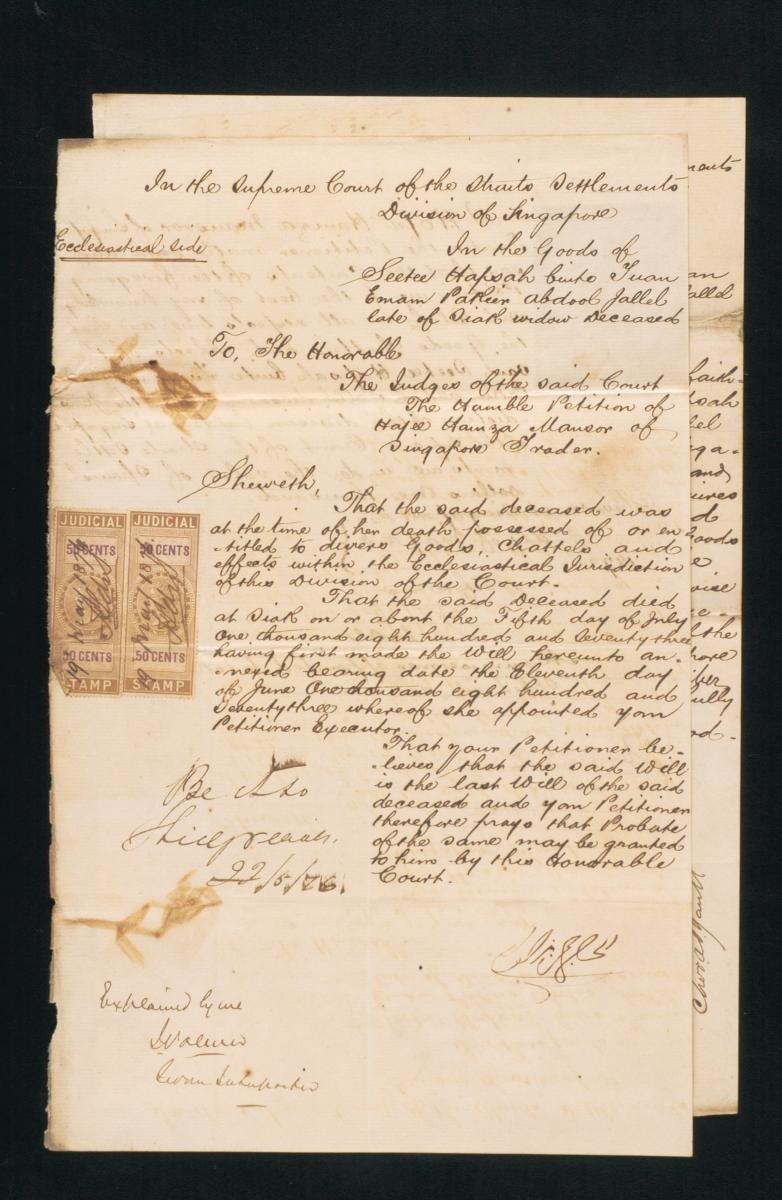 In the Supreme Court of the Straits Settlements
Division of Singapore
Ecclesiastical Side
In the Goods of
Seetee Hapsah binte Tuan
Emam Pakier abdool Jallel
late of Siak widow Deceased
To, The Honorable
The Judges of the said Court
The Humble Petition of
Hajee Hamza Mansor of
Singapore Trader.
Sheweth,
That the said deceased was
at the time of her death possessed of or en
-titled to divers Goods, Chattels and
effects within the Ecclesiastical Jurisdiction
of this Division of the Court.
That the said Deceased died
at Siak on or about the Fifth day of July
One thousand eight hundred and Seventy three
having first made the Will hereunto an-
-nexed bearing date the Eleventh day
of June One thousand eight hundred and
Seventythree whereof she appointed your
Petitioner Executor.
That your Petitioner be-
-lieves that the said Will
is the last Will of the said
deceased and your Petitioner
therefore prays that Probate
of the same may be granted
to him by this Honorable
Court.
JUDICIAL
50 CENTS
19 May 1876
50 CENTS
STAMP
JUDICIAL
50 CENTS
19 May 1876
50 CENTS
STAMP
Be it so
22/5/76.
Explained by me
Sworn Interpreter
ments
an
Jallel
faith-
psah
lel
nga-
and
uires
d
Goods
e
wise
e-
the
more
ver
fully
rd-